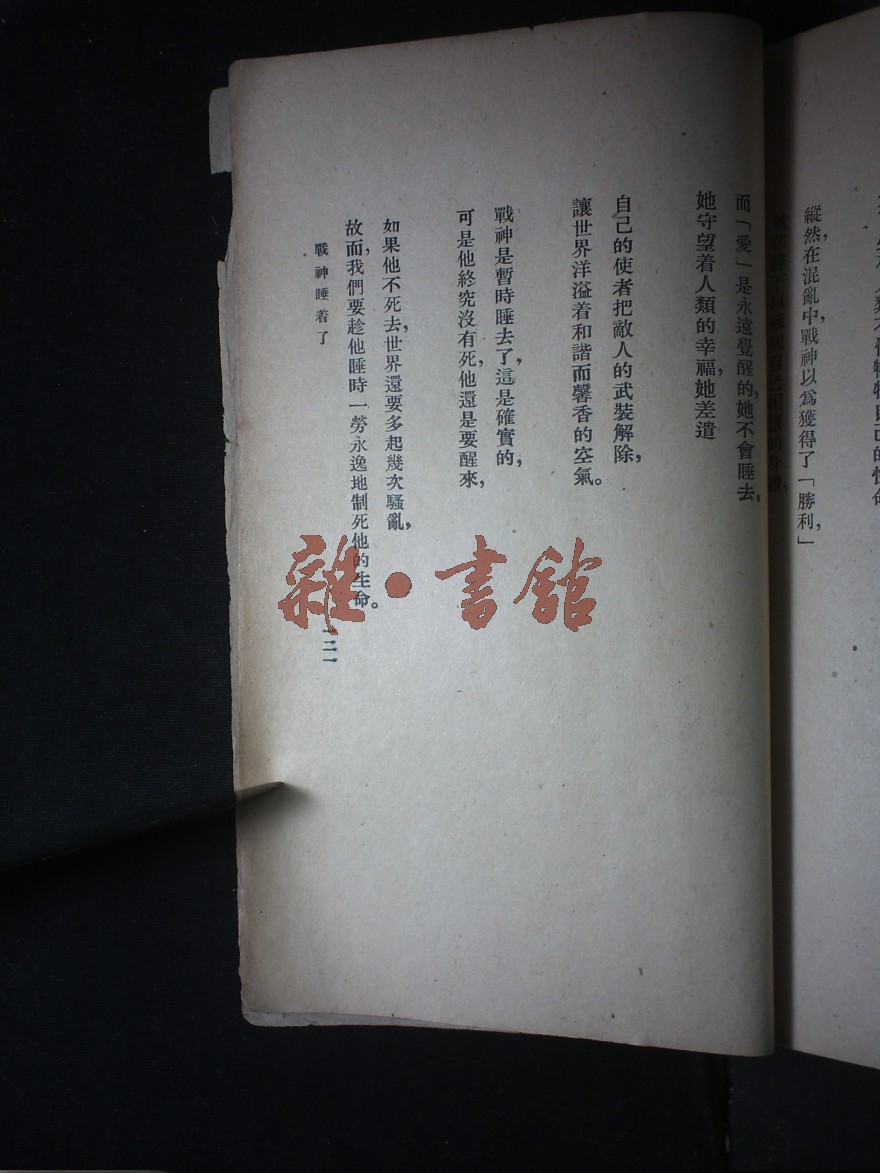 縱然在混亂中,戰神以爲獲得了「勝利,」
而「愛」是永遠覺醒的,她不會睡去,
她守望着人類的幸福,她差遣
自己的使者把敵人的武裝解除,
讓世界洋溢着和諧而馨香的空氣。
戰神是暫時睡去了,這是確實的,
可是他終究沒有死,他還是要醒來,
如果他不死去,世界還要多起幾次騷亂,
故而,我們要趁他睡時一勞永逸地制死他的生命。
戰神睡着了
一二一
雜·書館